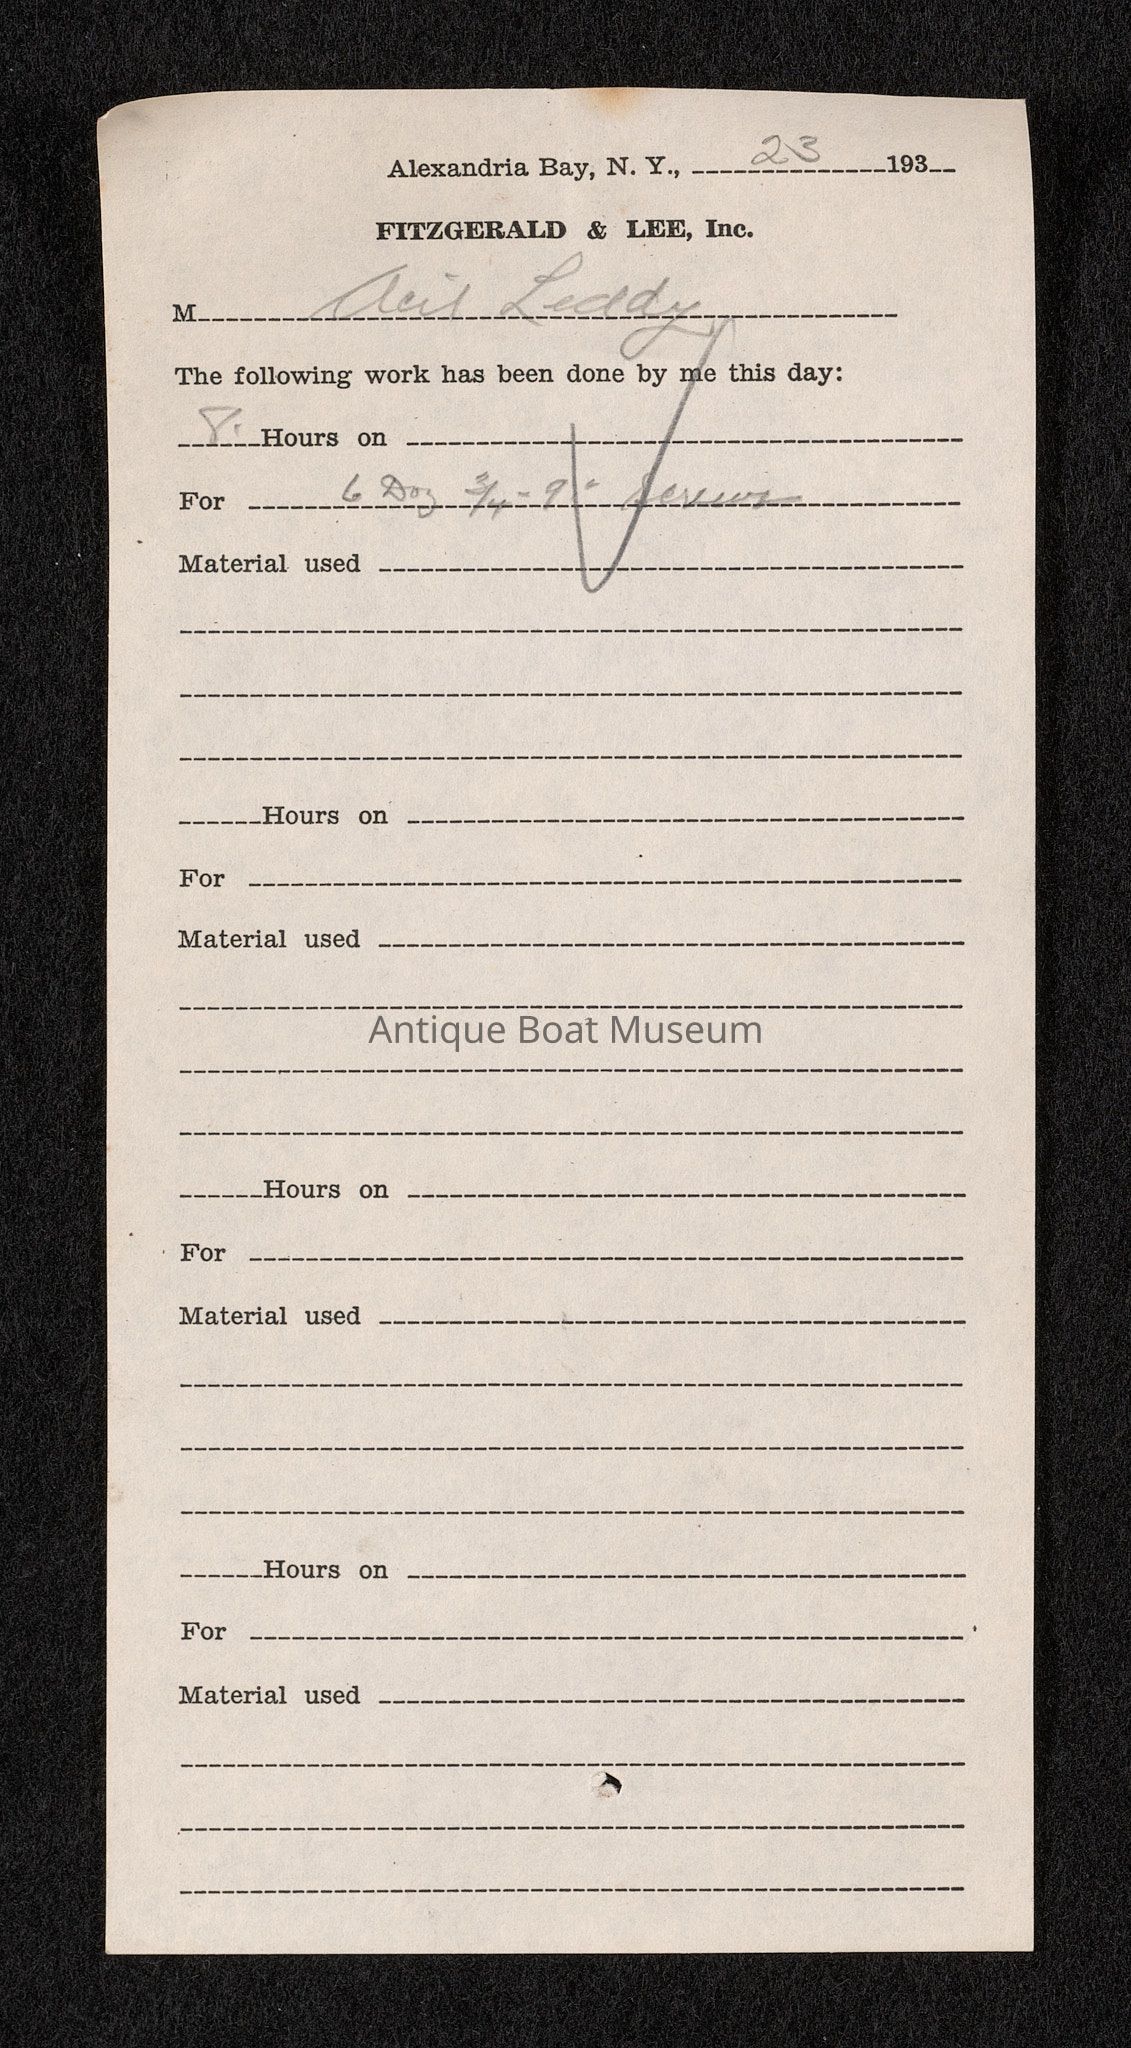 Alexandria Bay, N. Y., 23 193
FITZGERALD & LEE, Inc.
M Leddy
The following work has been done by me this day:
8 Hours on
For 6 Doz 3/4 - 9" Screws
Material used
Hours on
For
Material used
Antique Boat Museum
Hours on
For
Material used
Hours on
For
Material used